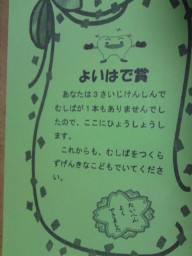 よいはで賞
あなたは３さいじけんしんで
むしばが１本もありませんでし
たので、ここにひょうしょうし
ます。
これからも、むしばをつくら
ずげんきなこどもでいてくださ
い。
たいへん
よく
できました